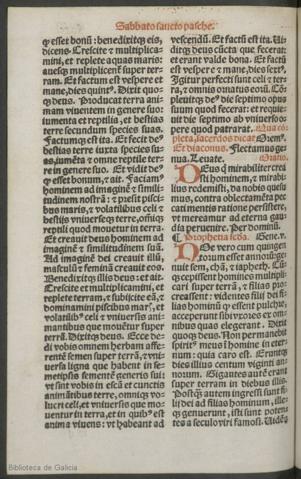 Sabbato sancto pasche.
q̃ esset bonũ: benedixitq̃ eis,
dicens. Crescite ⁊ multiplica
mini, et replete aquas maris:
auesq̃ multiplicent̃ super ter-
ram. Et factum est vespere et
mane, dies quint⁹. Dixit quo-
q̃ deus. Producat terra ani-
mam viuentem in genere suo:
iumenta et reptilia, et bestias
terre secundum species suas.
Factumq̃ est ita. Et fecit de⁹
bestias terre iuxta species su-
as, iumẽta ⁊ omne reptile ter-
re in genere suo. Et vidit de⁹
q̃ esset bonum, ⁊ ait. Faciam⁹
hominem ad imaginẽ ⁊ simili-
tudinem nostrã: ⁊ presit pisci-
bus maris, ⁊ volatilibus celi ⁊
bestijs vniuerseq̃ terre, omniq̃
reptili quod mouetur in terra.
Et creauit deus hominem ad
imaginẽ ⁊ similitudinem suã.
Ad imaginẽ dei creauit illũ,
masculũ ⁊ feminã creauit eos.
Benedixitq̃ illis deus: et ait.
Crescite et multiplicamini, et
replete terram, ⁊ subijcite eã, ⁊
dominamini piscibus mar⁹, et
volatilib⁹ celi ⁊ vniuersis ani-
mantibus que mouẽtur super
terrã. Dixitq̃ deus. Ecce de-
di vobis omnem herbam affe-
rentẽ semen super terrã, ⁊ vni-
uersa ligna que habent in se-
metipsis sementẽ generis sui:
vt sint vobis in escã et cunctis
animãtibus terre, omniq̃ vo-
lucri celi, et vniuersis que mo-
uentur in terra, et in quib⁹ est
anima viuens: vt habeant ad
vescendũ. Et factũ est ita. Ui-
ditq̃ deus cũcta que fecerat:
et erant valde bona. Et factũ
est vespere ⁊ mane, dies sext⁹.
Igitur perfecti sunt celi et ter-
ra, ⁊ omnis ornatus eorũ. Cõ-
pleuitq̃ de⁹ die septimo opus
suum quod fecerat: et requie-
uit die septimo ab vniuerso o-
pere quod patrarat. Qua cõ-
pleta, sacerdos dicat. Orem⁹.
Et diaconus. Flectamus ge-
nua. Leuate. Oratio.
Deus q̃ mirabiliter crea
sti hominem, ⁊ mirabi-
lius redemisti, da nobis quesu
mus, contra oblectamẽta pec
cati mentis ratione persistere,
vt mereamur ad eterna gau-
dia peruenire. Per dominũ.
Prophetia scda. Gene. v.
Noe vero cum quingen
torum esset annorũ: ge-
nuit sem, chã, ⁊ iapheth. Cũ-
q̃ cepissent homines multipli-
cari super terrã, ⁊ filias pro-
creassent: videntes filij dei fi-
lias hominũ q̃ essent pulchre,
acceperunt sibi vxores ex om-
nibus quas elegerant. Dixit
quoq̃ deus. Non permanebit
spirit⁹ meus ĩ homine in eter-
num: quia caro est. Eruntq̃
dies illius centum viginti an-
norum. Gigantes autẽ erant
super terram in diebus illis.
Postq̃ autem ingressi sunt fi-
lij dei ad filias hominum, ille-
q̃ genuerunt, isti sunt poten-
tes a seculo viri famosi. Uidẽs
Biblioteca de Galicia